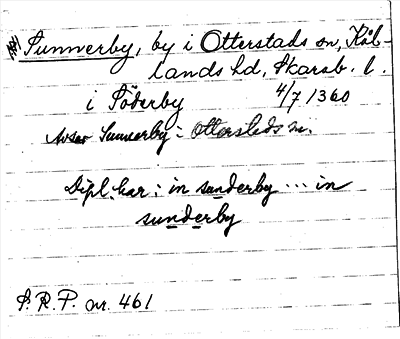 Sunnerby, by i Otterstads sn, Kål-
lands hd, Skarab. l.
i Söderby 4/7 1360
Avser Sunnerby i Otterstads sn.
Dipl. har: in sunderby ... in
sunderby
S.R.P. nr. 461